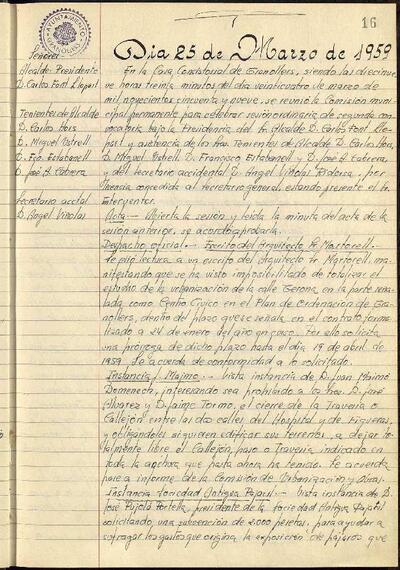 16
AYUNTAMIENTO
GRANOLLERS
Día 25 de Marzo de 1959
Señores
Alcalde-Presidente
D. Carlos Font Llopart
Tenientes de Alcalde
D. Carlos
D. Miguel Estrell
D. Fco. Estabanell
D. José A. Cabrera
Secretario acctal
D. Angel Viñolas
En la Casa Consistorial de Granollers, siendo las diecinue
ve horas treinta minutos del día veinticuatro de marzo de
mil novecientos cincuenta y nueve, se reunió la Comisión muni
cipal permanente para celebrar sesión ordinaria de segunda con
vocatoria bajo la Presidencia del Sr. Alcalde D. Carlos Font Llo
part y asistencia de los Sres. Tenientes de Alcalde D. Carlos
D. Miguel Estrell D. Francisco Estabanell y D. José A. Cabrera,
y del Secretario accidental D. Angel Viñolas por
licencia concedida al Secretario general, estando presente el Sr.
Interventor.
Acta.- Abierta la sesión y leída la minuta del acta de la
sesión anterior, se acordó aprobarla.
Despacho oficial.- Escrito del Arquitecto Sr. Martorell.-
Se dió lectura a un escrito del Arquitecto Sr. Martorell, ma
nifestando que se ha visto imposibilitado de totalizar el
estudio de la urbanización de la calle Gerona, en la parte seña
lada como Centro Cívico en el Plan de Ordenación de Gra
nollers, dentro del plazo que se señala en el contrato forma
lizado a 24 de enero del año en curso. Por ello solicita
una prórroga de dicho plazo hasta el día 19 de abril de
1959. Se acuerda de conformidad a lo solicitado.
Instancia J. Maimó.- Vista instancia de D. Juan Maimó
Domenech, interesando sea prohibido a los Sres. D. José
Alvarez y D. Jaime Tormo, el cierre de la Travesía o
Callejón entre las dos calles del Hospital y de Figueras,
y obligándoles si quieren edificar sus terrenos, a dejar to
talmente libre el Callejón, paso o Travesía indicado en
toda la anchura que hasta ahora ha tenido. Se acuerda
pase a informe de la Comisión de Urbanización y Obras.
Instancia Sociedad Antigua Pajaril.- Vista instancia de D.
José Pujolá Portella, presidente de la Sociedad Antigua Pajaril
solicitando, una subvención de 2.000 pesetas, para ayudar a
sufragar los gastos que origina la exposición de pájaros que